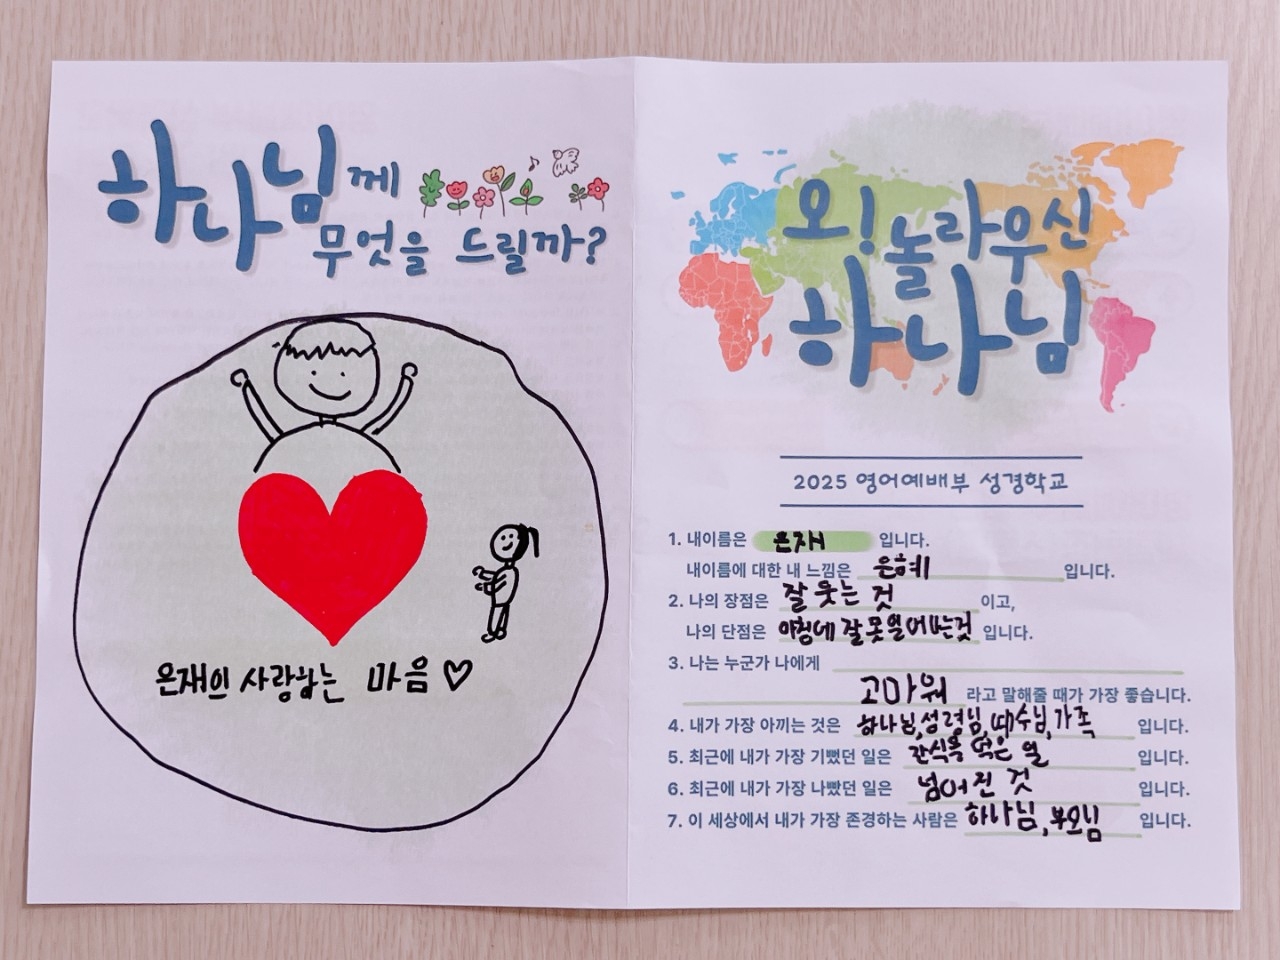 하나님께
무엇을 드릴까?
은재의 사랑하는 마음♡
오! 놀라우신
하나님
2025 영어예배부 성경학교
1. 내이름은 은재 입니다.
내이름에 대한 내 느낌은 은혜 입니다.
2. 나의 장점은 잘 웃는 것 이고,
나의 단점은 아침에 잘 못 일어나는것 입니다.
3. 나는 누군가 나에게
고마워 라고 말해줄 때가 가장 좋습니다.
4. 내가 가장 아끼는 것은 하나님, 성령님, 예수님, 가족 입니다.
5. 최근에 내가 가장 기뻤던 일은 간식을 먹은 일 입니다.
6. 최근에 내가 가장 나빴던 일은 넘어진 것 입니다.
7. 이 세상에서 내가 가장 존경하는 사람은 하나님, 부모님 입니다.